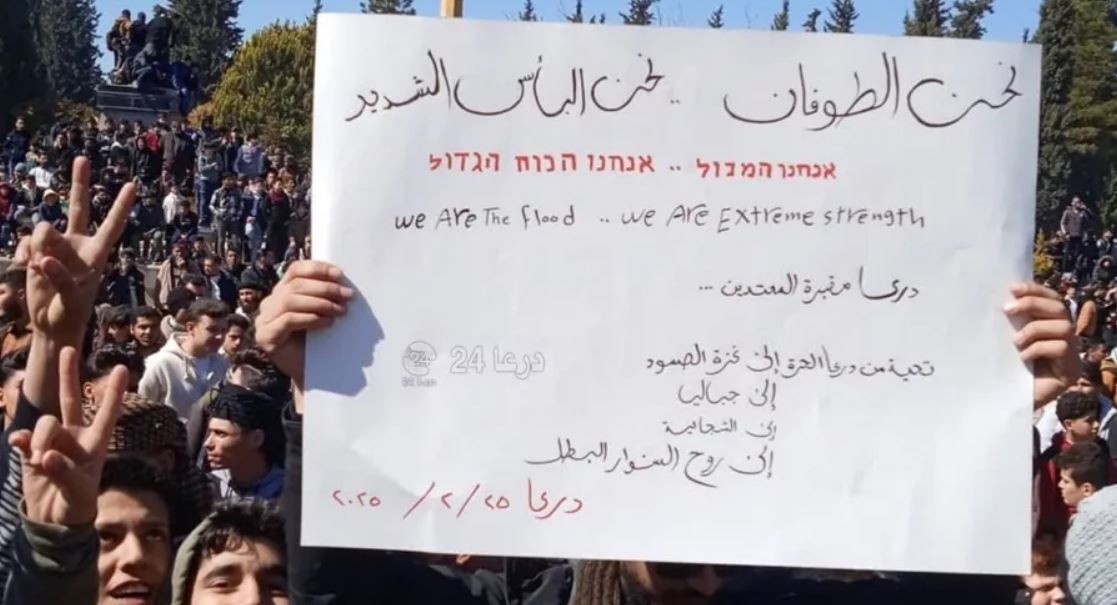 نحن الطوفان .. نحن البأس الشديد
אנחנו המבול .. אנחנו הכוח הגדול
we Are The flood .. we Are Extreme strength
درعا مقبرة المعتدين ...
تحية من درعا الحرة إلى غزة الصمود
إلى جباليا
إلى الشجاعية
إلى روح السنوار البطل
درعا ٢٥/٢/٢٠٢٥
درعا 24
24